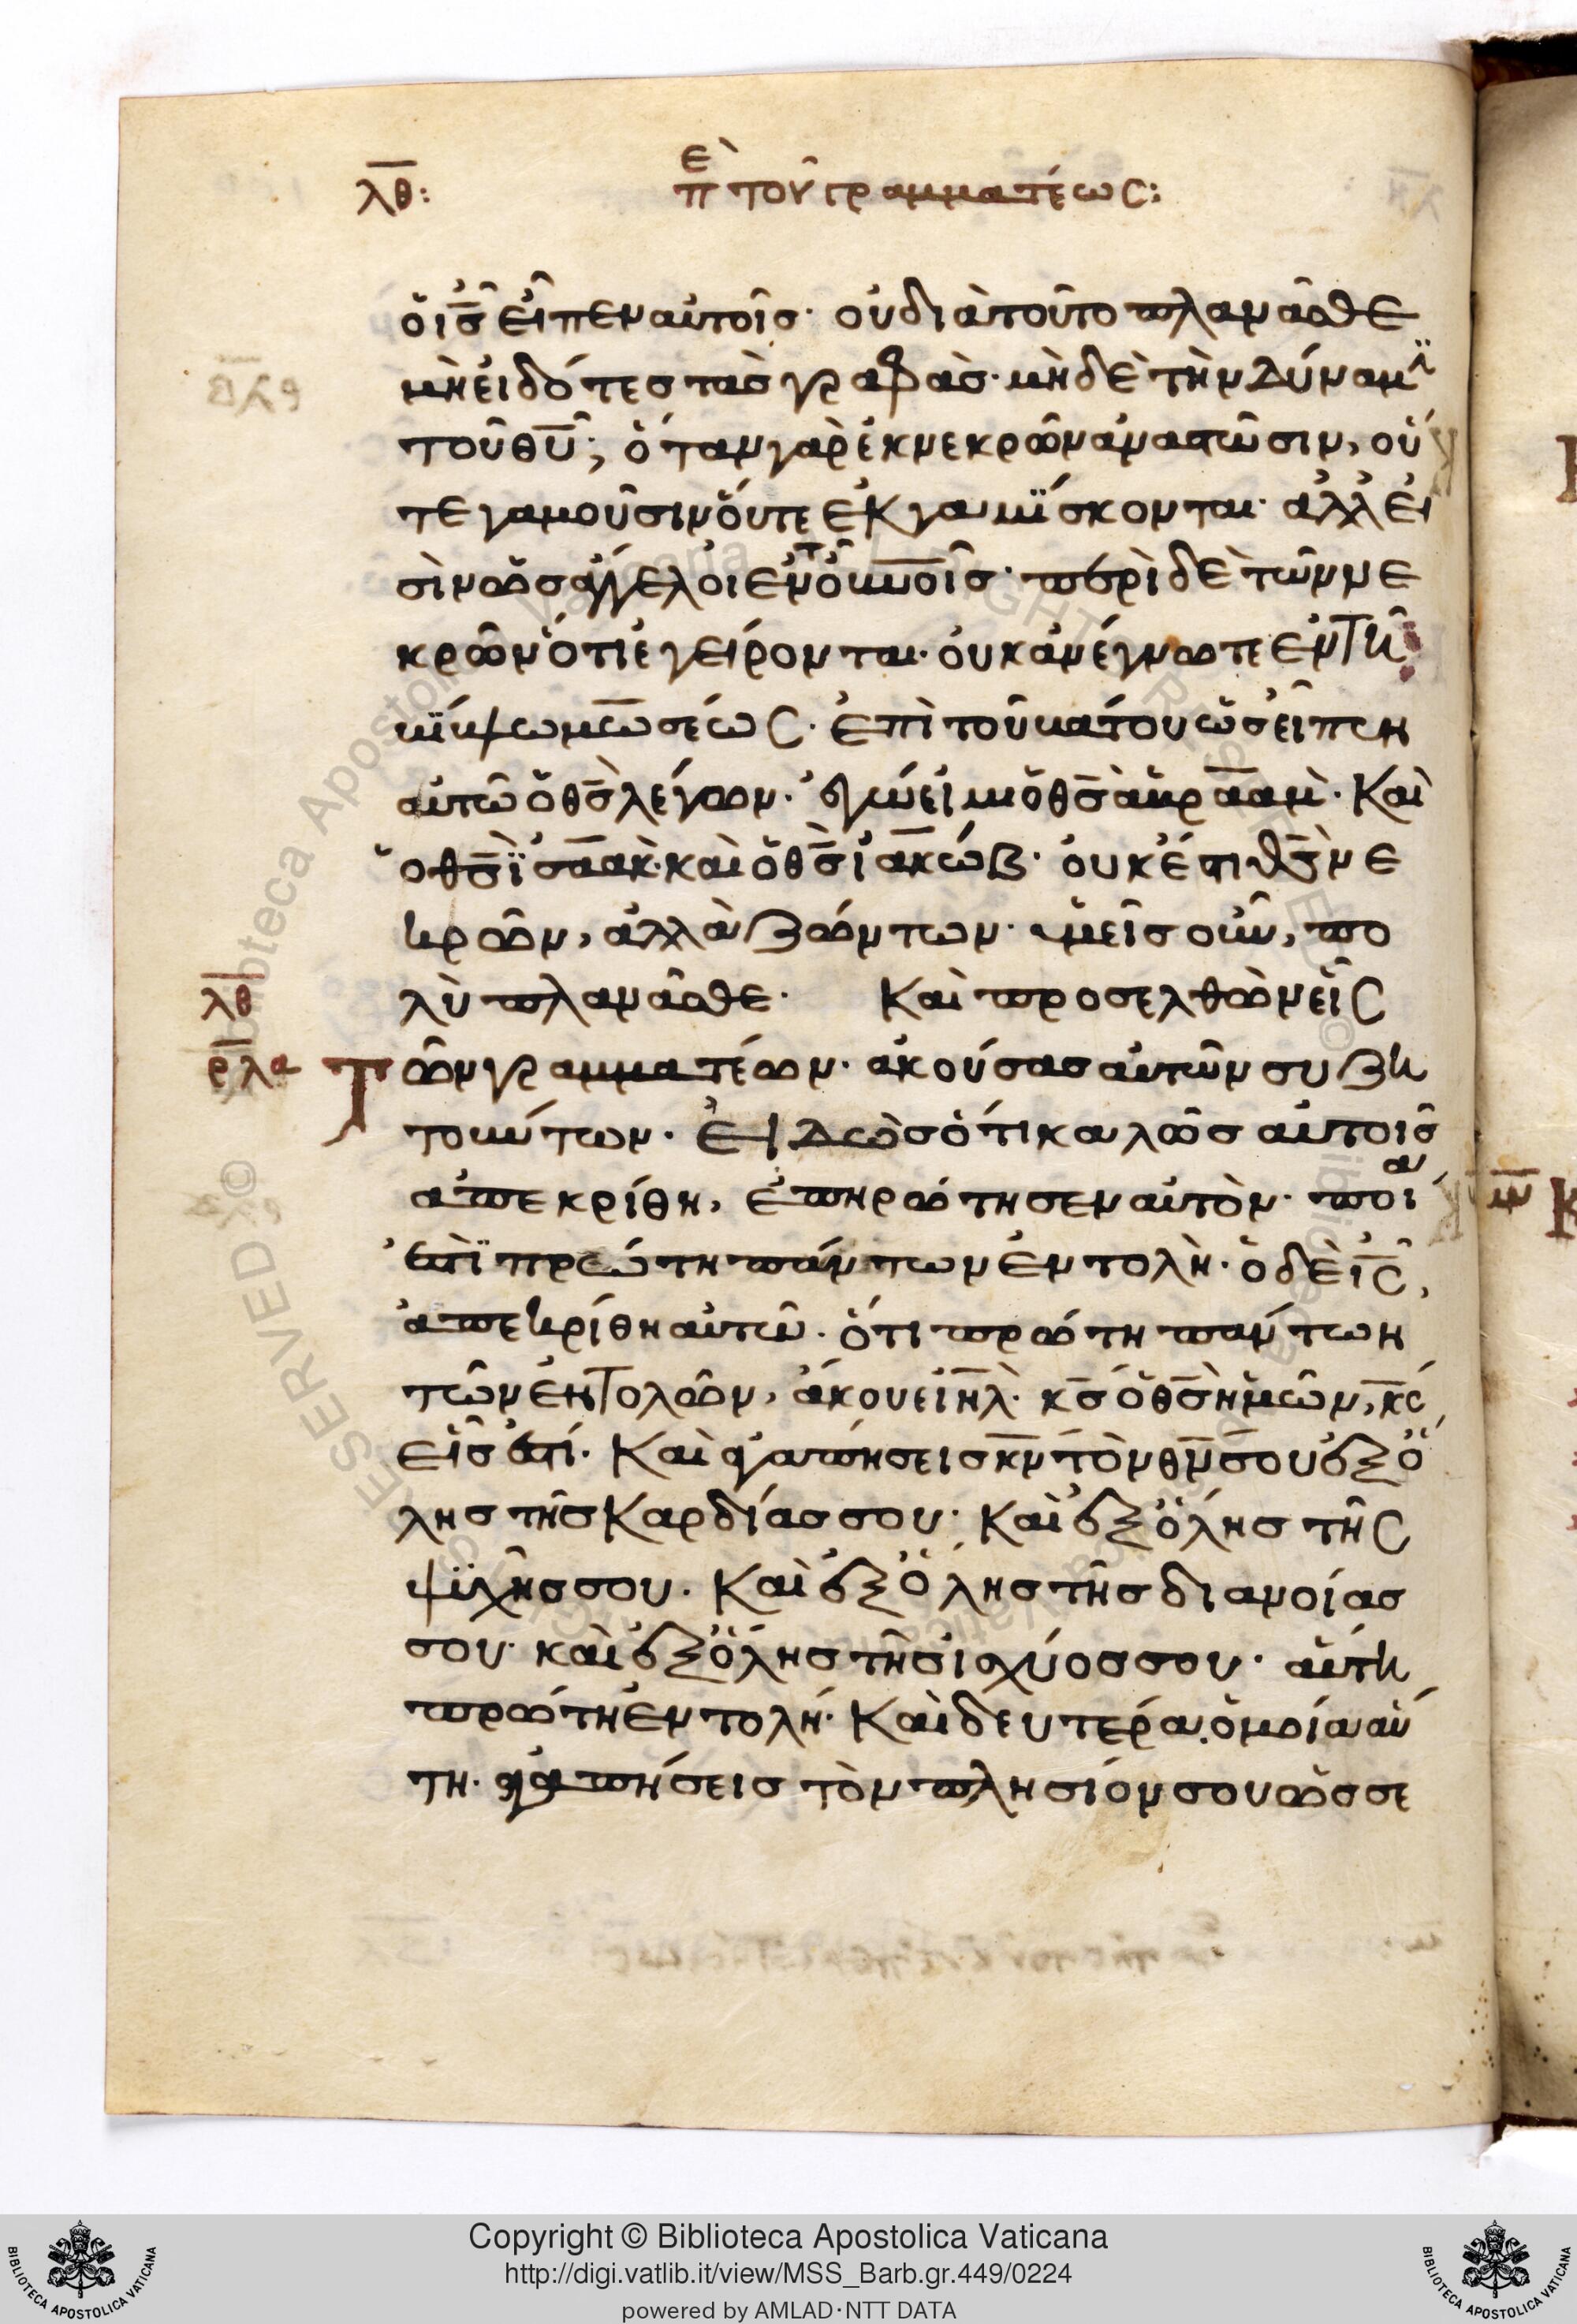 λθ: πε τοῦ γραμματέως:
ὁ ις εἶπεν αὐτοῖσ· οὐ διὰ τοῦτο πλανᾶσθε
μὴ εἰδότεσ τὰσ γραφὰσ· μὴ δὲ τὴν δύναμϊ
τοῦ θυ; ὅταν γὰρ ἐκ νεκρῶν ἀναστῶσιν, οὔ
τε γαμοῦσιν οὔτε ἐκγαμΐσκονται· ἀλλ εἰ
σὶν ὡσ ἄγγελοι ἐν τοῖσ ουνοισ· περὶ δὲ τῶν νε
κρῶν ὅτι ἐγείρονται· οὐκ ἀνέγνωτε ἐν τῆ
βίβλω μωσέως· ἐπὶ τοῦ βάτου ὡσ εἶπεν
αὐτῶ ὁ θσ λέγων· ἐγώ εἰμι ὁ θσ ἀβραάμ· καὶ
ὁ θσ ϊσαάκ· καὶ ὁ θσ ἰακώβ· οὐκ ἔστι θσ νε
κρῶν, ἀλλὰ ζώντων· ὑμεῖσ οὖν, πο
λὺ πλανᾶσθε· Καὶ προσελθὼν εἷς
λβ
ρλα Τῶν γραμματέων· ἀκούσασ αὐτῶν συζη
τούντων· εἰδὼσ ὅτι καλῶσ αὐτοῖσ
ἀπεκρίθη, ἐπηρώτησεν αὐτὸν· ποία
ἐστὶ πρώτη πάντων ἐντολὴ· ὁ δὲ ις,
ἀπεκρίθη αὐτῶ· ὅτι πρώτη πάντων
τῶν ἐντολῶν, ἄκουε ιηλ· κσ ὁ θσ ἡμῶν, κς
εἷσ ἐστί· Καὶ ἀγαπήσεισ κν τὸν θν σου ἐξ ὅ
λησ τῆσ καρδίασ σου· Καὶ ἐξ ὅλησ τῆς
ψϋχῆσ σου· Καὶ ἐξ ὅλησ τῆσ διανοίασ
σου· καὶ ἐξ ὅλησ τῆσ ἰσχύοσ σου· αὕτη
πρώτη ἐντολή· Καὶ δευτέρα ὁμοία αὕ
τη· ἀγαπήσεισ τὸν πλησίον σου ὡσ σε
Copyright © Biblioteca Apostolica Vaticana
http://digi.vatlib.it/view/MSS_Barb.gr.449/0224
powered by AMLAD·NTT DATA